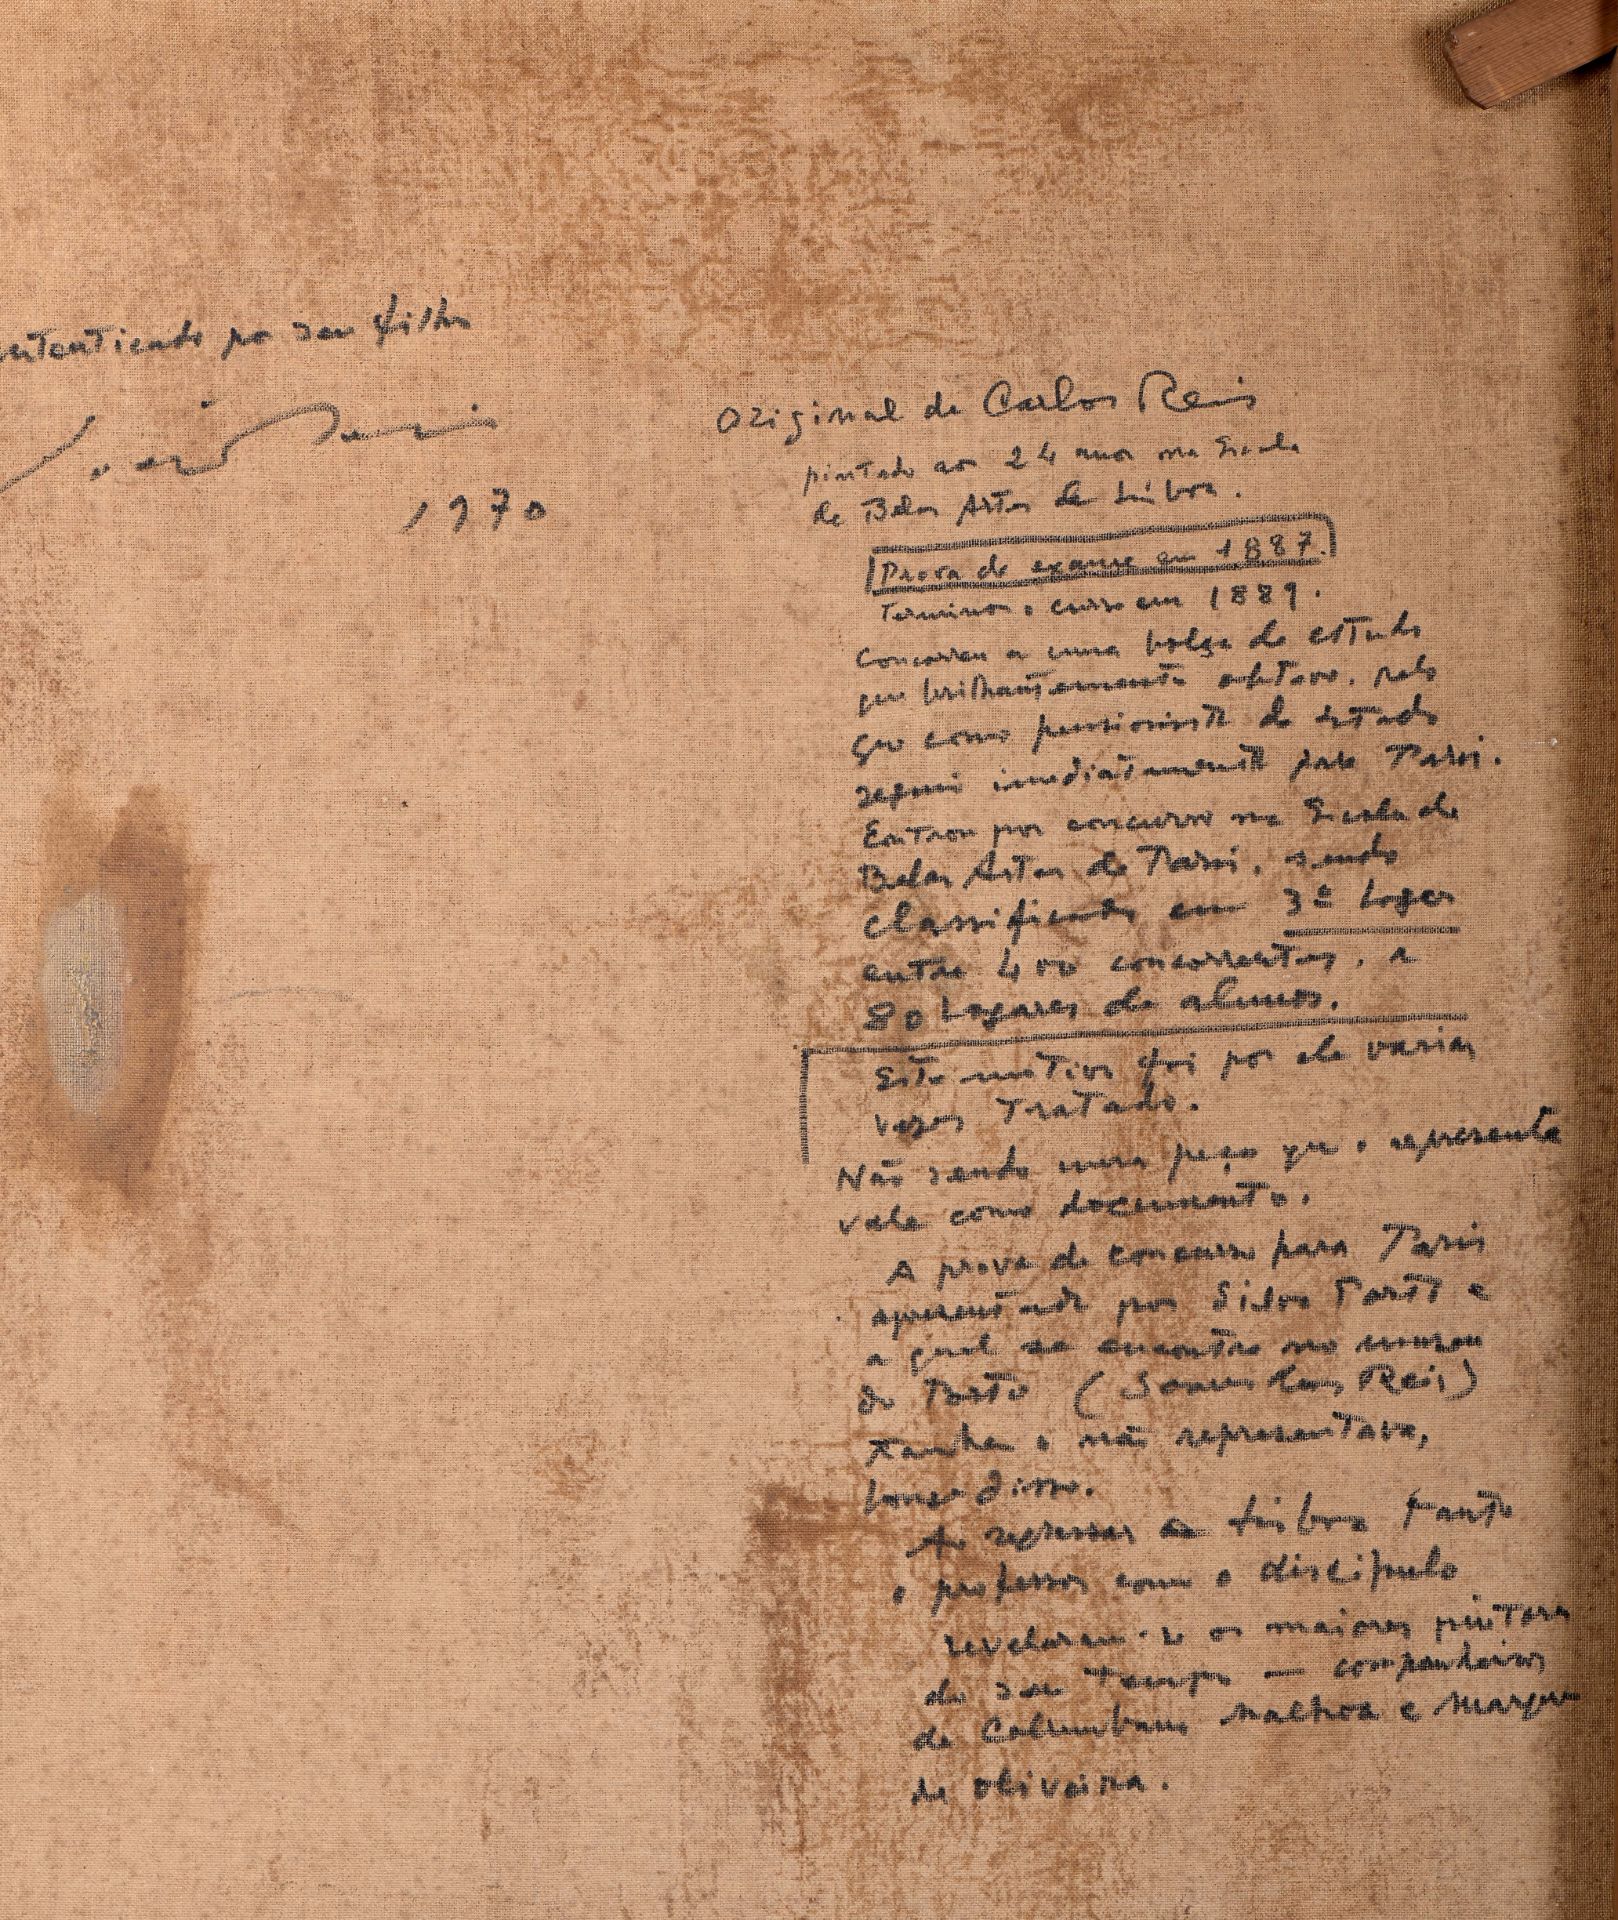 autenticado por seu filho
João Reis
1970
Original de Carlos Reis
pintado aos 24 anos na Escola
de Belas Artes de Lisboa.
Prova de exame em 1887.
Terminou o curso em 1889.
Concorreu a uma bolsa de estudo
que brilhantemente obteve, pelo
que como pensionista do estado
seguiu imediatamente para Paris.
Entrou por concurso na Escola de
Belas Artes de Paris, sendo
classificado em 3º Logar
entre 400 concorrentes, a
80 Logares de alunos.
Este motivo foi por ele varias
vezes tratado.
Não sendo uma peça que o represente
vale como documento.
A prova de concurso para Paris
apresentada por Silva Porto e
a qual se encontra no museu
do Porto (Soares dos Reis)
tambem o não representava,
longe disso.
Ao regressar a Lisboa tanto
o professor como o discipulo
revelaram-se os maiores pintores
do seu tempo — companheiros
de Columbano Malhoa e Marques
de Oliveira.